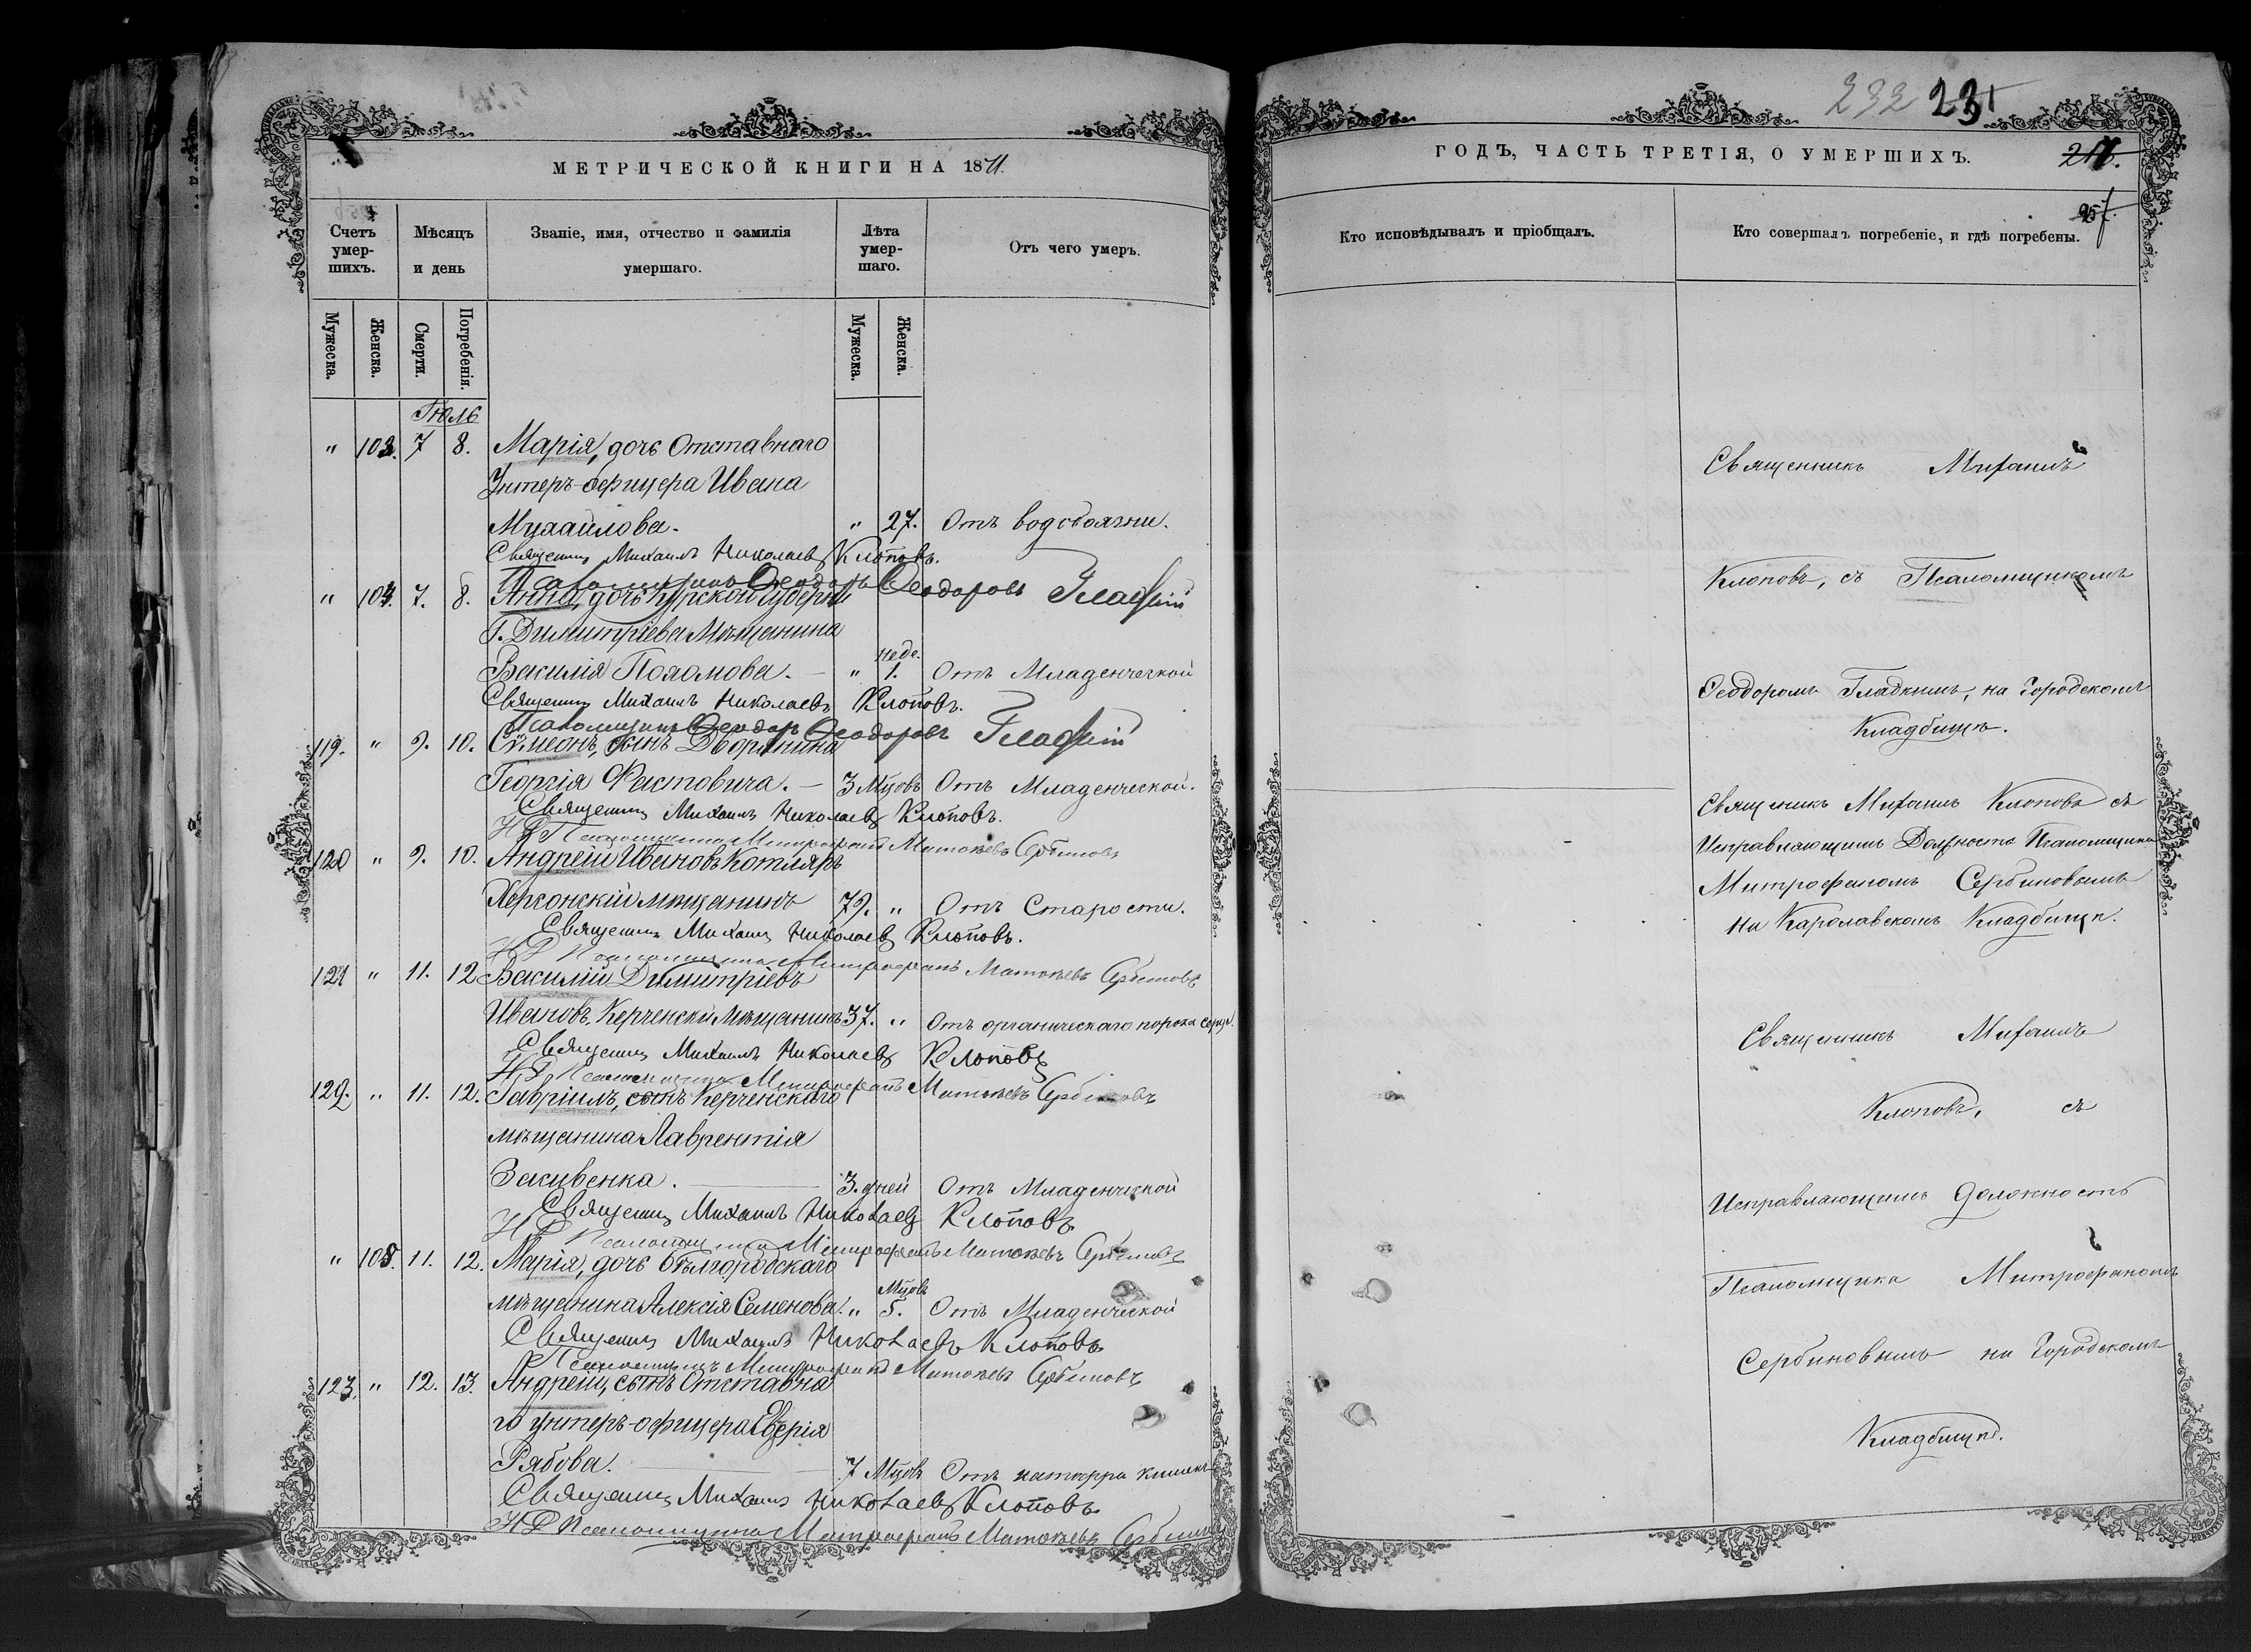 МЕТРИЧЕСКОЙ КНИГИ НА 1871.
Счетъ умер-шихъ.
Мѣсяцъ и день
Званіе, имя, отчество и фамилія умершаго.
Лѣта умер-шаго.
Отъ чего умеръ.
Мужеска.
Женска.
Смерти.
Погребенія.
Мужеска.
Женска.
Іюль
" 103. 7 8. Марія, дочь Отставнаго
Унтеръ-офицера Ивана
Михайлова. " 27. Отъ водобоязни.
Священникъ Михаилъ Николаевъ Клоповъ.
Псаломщикъ Ѳеодоръ Ѳеодоровъ Гладкій
" 104. 7. 8. Анна, дочь Курской губерніи
Г. Димитріева Мѣщанина
неде.
Василія Поломова. — " 1. Отъ Младенческой
Священникъ Михаилъ Николаевъ Клоповъ.
Псаломщикъ Ѳеодоръ Ѳеодоровъ Гладкій
119. " 9. 10. Сѵмеонъ, сынъ Дворянина
Георгія Фастовича. — 3 Мцовъ Отъ Младенческой.
Священникъ Михаилъ Николаевъ Клоповъ.
И Д Псаломщика Митрофанъ Матвеевъ Сербиновъ
120 " 9. 10. Андрей Ивановъ Котляръ
Херсонскій мѣщанинъ 79. " Отъ Старости.
Священникъ Михаилъ Николаевъ Клоповъ.
И Д Псаломщика Митрофанъ Матвеевъ Сербиновъ
121 " 11. 12 Василій Димитріевъ
Ивановъ, Керченскій Мѣщанинъ 37. " Отъ органическаго порока сердц.
Священникъ Михаилъ Николаевъ Клоповъ
И Д Псаломщика Митрофанъ Матвеевъ Сербиновъ
122. " 11. 12. Гавріилъ, сынъ Керченскаго
мѣщанина Лаврентія
Засивенка. — 3. дней Отъ Младенческой
Священникъ Михаилъ Николаевъ Клоповъ
И Д Псаломщика Митрофанъ Матвеевъ Сербиновъ
" 105. 11. 12. Марія, дочь Бѣлгородскаго
Мцовъ
мѣщанина Алексія Семенова. " 5. Отъ Младенческой
Священникъ Михаилъ Николаевъ Клоповъ
Псаломщикъ Митрофанъ Матвеевъ Сербиновъ
123. " 12. 13. Андрей, сынъ Отставна
го унтеръ-офицера
Рябова. — 7 Мцовъ Отъ катарра кишекъ
Священникъ Михаилъ Николаевъ Клоповъ
И Д Псаломщика Митрофанъ Матвеевъ Сербиновъ
232 231
ГОДЪ, ЧАСТЬ ТРЕТІЯ, О УМЕРШИХЪ.
257.
Кто исповѣдывалъ и пріобщалъ.
Кто совершалъ погребеніе, и гдѣ погребены.
Священникъ Михаилъ
Клоповъ, съ Псаломщикомъ
Ѳеодоромъ Гладкимъ, на Городскомъ
Кладбищѣ.
Священикъ Михаилъ Клоповъ съ
Исправляющимъ Должность Псаломщика
Митрофаномъ Сербиновымъ
на Кароловскомъ Кладбищѣ.
Священникъ Михаилъ
Клоповъ, съ
Исправляющимъ должность
Псаломщика Митрофаномъ
Сербиновымъ на Городскомъ
Кладбищѣ.